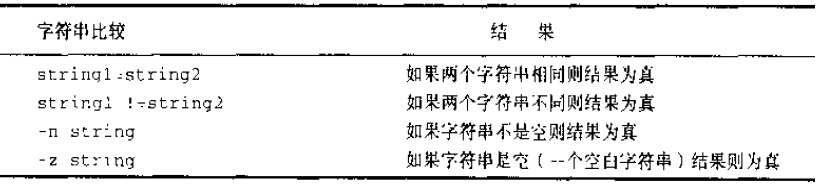 字符串比较 结 果
string1=string2 如果两个字符串相同则结果为真
string1 !=string2 如果两个字符串不同则结果为真
-n string 如果字符串不是空则结果为真
-z string 如果字符串是空(一个空白字符串)结果则为真